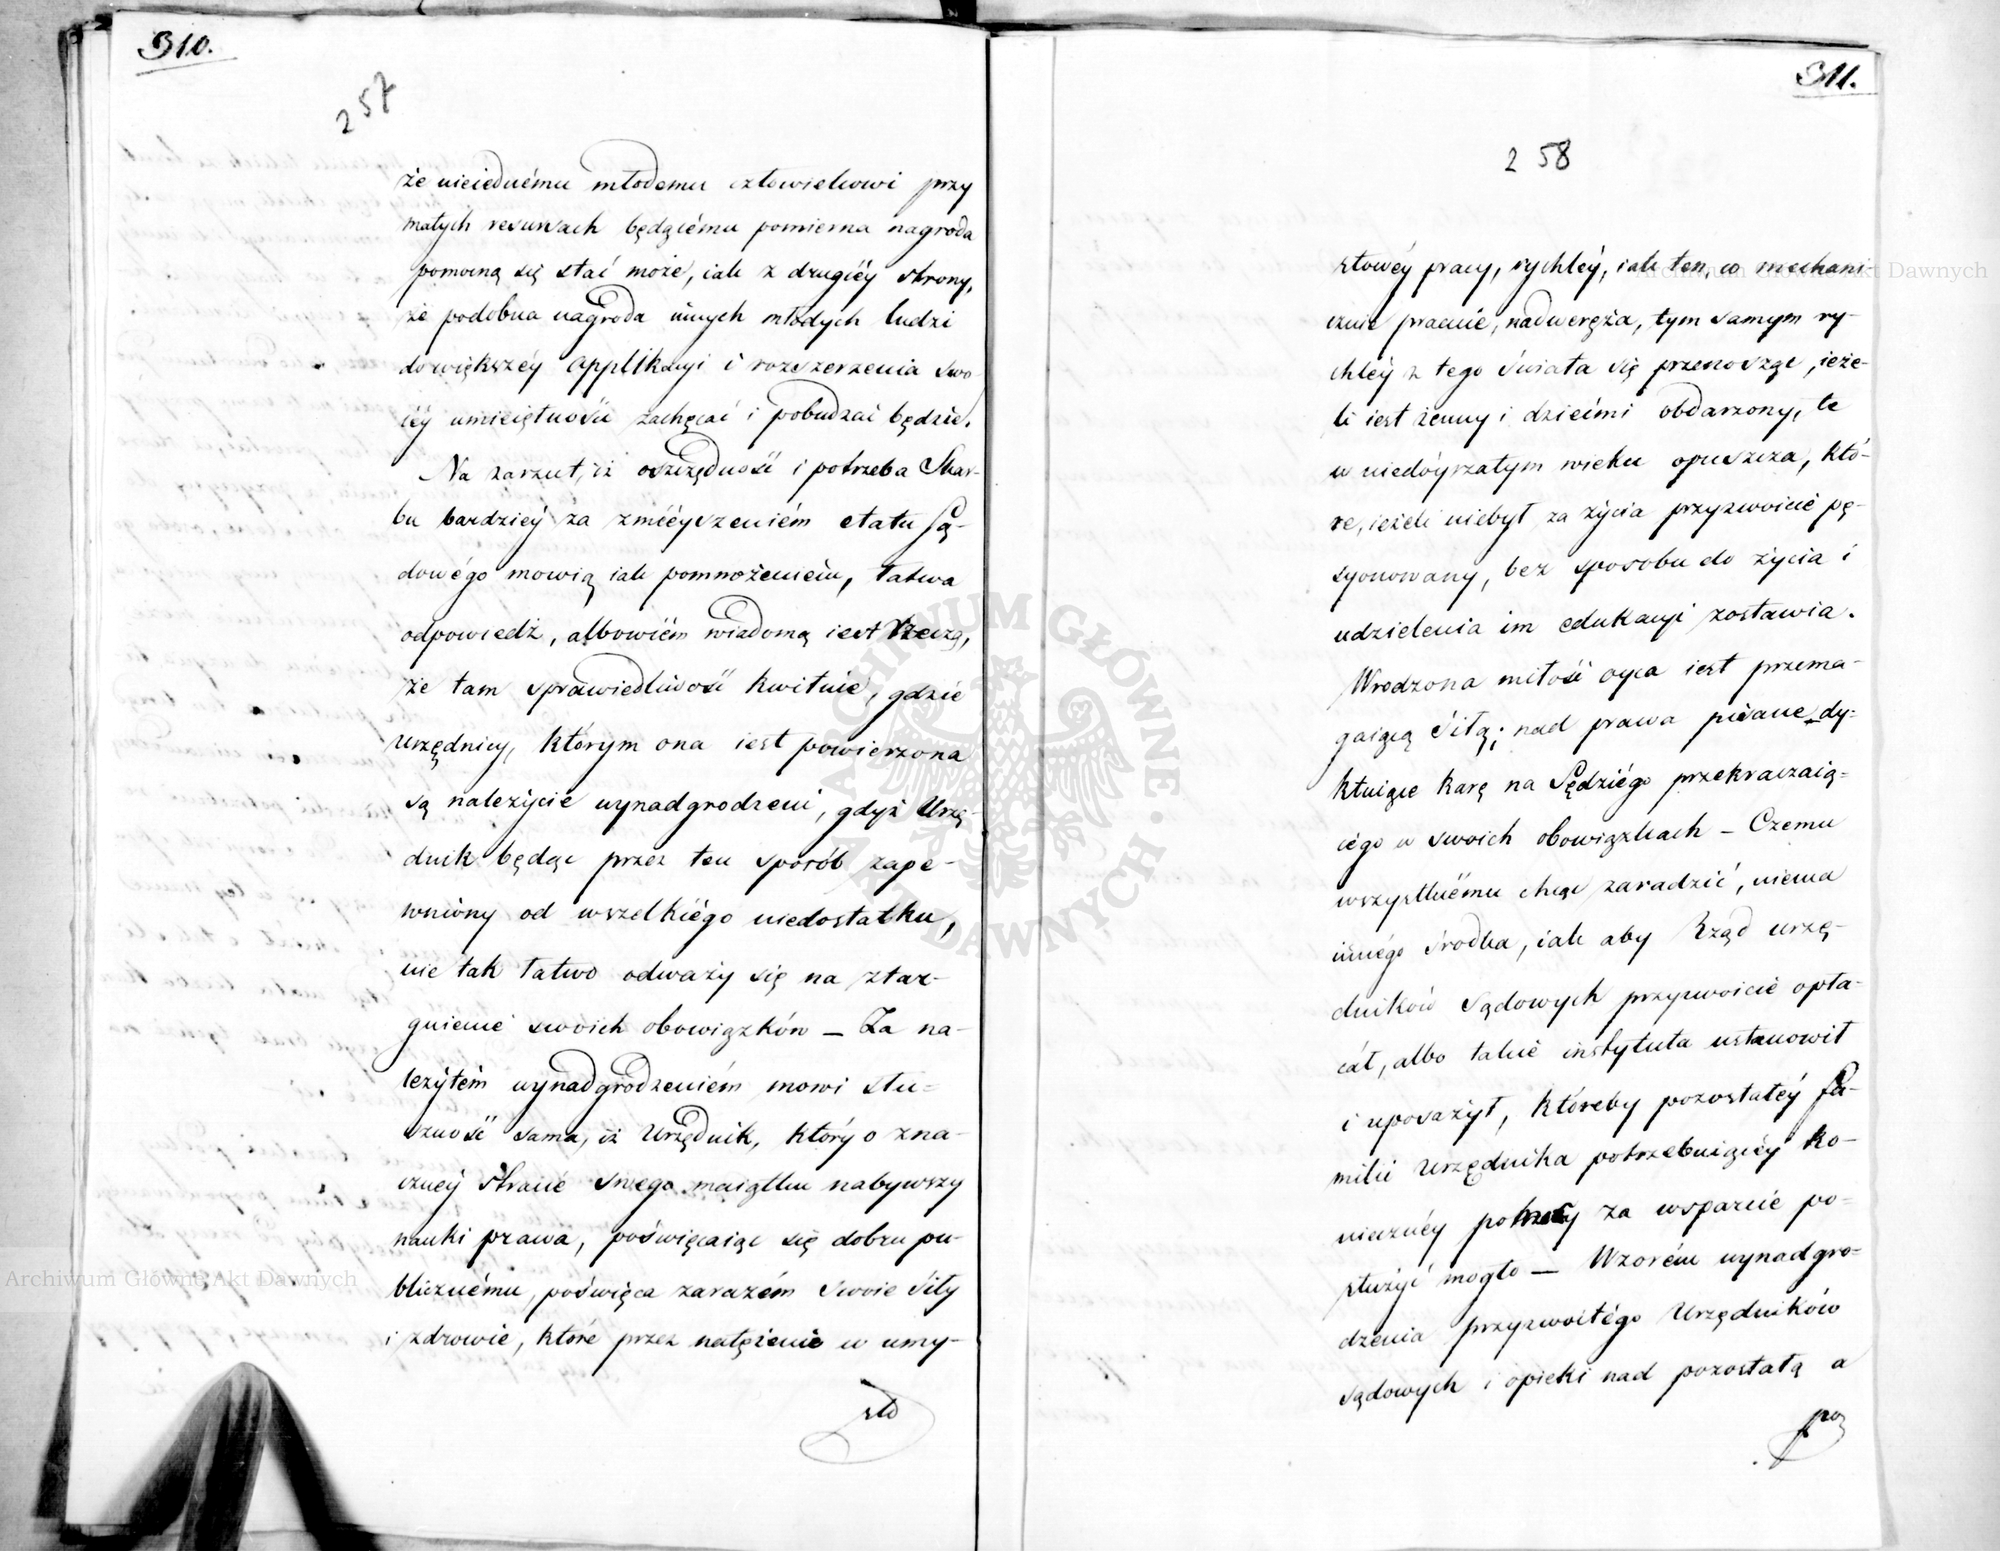 310.
257
że nieiednému młodemu człowiekowi przy
małych resursach będącému pomierna nagroda
pomocną się stać może, iak z drugiéy strony,
że podobna nagroda innych młodych ludzi
do większéy applikacyi i rozszerzenia swo-
iéy umieiętności zachęcać i pobudzać będzie.
Na zarzut, iż oszczędność i potrzeba Skar-
bu bardziéy za zmnieyszeniém etatu Są-
dowégo mowią iak pomnożeniem, łatwa
odpowiedź, albowiém wiadomą iest rzeczą,
że tam sprawiedliwość kwitnie, gdzie
urzędnicy, którym ona iest powierzona
są należycie wynadgrodzeni, gdyż Urzę-
dnik będąc przez ten sposób zape-
wniony od wszelkiégo niedostatku,
nie tak łatwo odważy się na ztar-
gnienie swoich obowiązków – Za na-
leżytém wynadgrodzeniém mowi słu-
szność sama, iż Urzędnik, który o zna-
cznéy stracie swego maiątku nabywszy
nauki prawa, poświęcaiąc się dobru pu-
blicznému, poświęca zarazém swoie siły
i zdrowie, które przez natężenie w umy-
sło
311.
258
słowéy pracy, rychléy, iak ten, co mechani
cznie pracuie, nadweręża, tym samym ry-
chléy z tego świata się przenosząc, ieże-
li iest żonny i dziećmi obdarzony, te
w niedóyrzałym wieku opuszcza, któ-
re, ieżeli niebył za życia przyzwoicie pę-
syonowany, bez sposobu do życia i
udzielenia im edukacyi zostawia.
Wrodzona miłość oyca iest przema-
gaiącą siłą; nad prawa pisane dy-
ktuiące karę na Sędziégo przekraczaią-
cégo w swoich obowiązkach – Czemu
wszystkiému chcąc zaradzić, niema
innégo środka, iak aby Rząd urzę-
dników Sądowych przyzwoicie opła-
cał, albo takie instytuta ustanowił
i uposażył, któreby pozostałéy fa-
milii Urzędnika potrzebuiącéy ko-
niecznéy pomocy za wsparcie po-
służyć mogło – Wzorém wynadgro-
dzenia przyzwoitégo Urzędników
sądowych i opieki nad pozostałą a
po
Archiwum Główne Akt Dawnych
Archiwum Główne Akt Dawnych
ARCHIWUM GŁÓWNE · AKT DAWNYCH ·